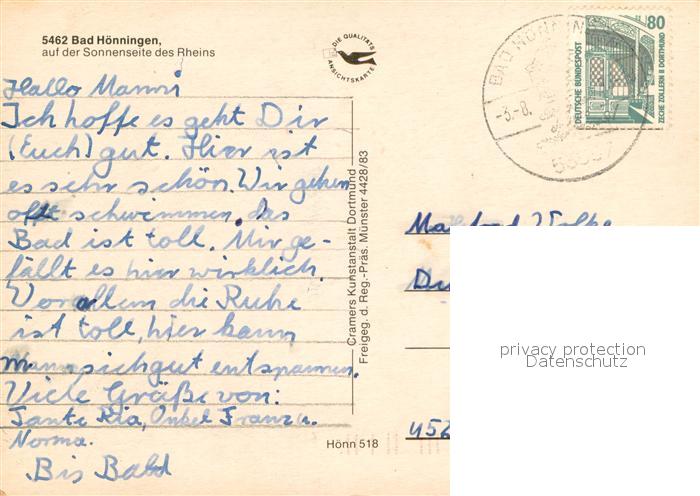 5462 Bad Hönningen,
auf der Sonnenseite des Rheins
DIE QUALITÄTS
ANSICHTSKARTE
80
DEUTSCHE BUNDESPOST
ZECHE ZOLLERN II DORTMUND
BAD HÖNNIN
-3.-8.
Hallo Manni
Ich hoffe es geht Dir
(Euch) gut. Hier ist
es sehr schön. Wir gehen
oft schwimmen, das
Bad ist toll. Mir ge-
fällt es hier wirklich.
Vorallem die Ruhe
ist toll, hier kann
mann sich gut entspannen.
Viele Grüße von:
Tante Ria, Onkel Franz u.
Norma.
Bis Bald
Cramers Kunstanstalt Dortmund
Freigeg. d. Reg.-Präs. Münster 4428/83
Hönn 518
Du
452
privacy protection
Datenschutz